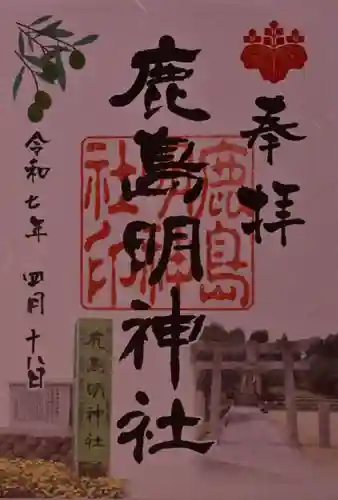 奉拝
鹿島明神社
鹿島明神社印
令和七年 四月 十八日
鹿島明神社